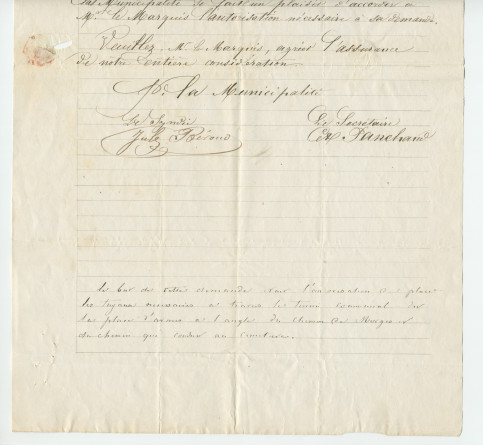 La Municipalité se fait un plaisir d'accorder à
M. le Marquis l'autorisation nécessaire à sa demande.
Veuillez, M. le Marquis, agréer l'assurance
de notre entière considération.
P. la Municipalité
Le Syndic
Le Secrétaire
le but de cette demande est l'autorisation de placer
les tuyaux nécessaires à travers le terrain communal
la place à l'angle du chemin de
du chemin qui conduit au cimetière.